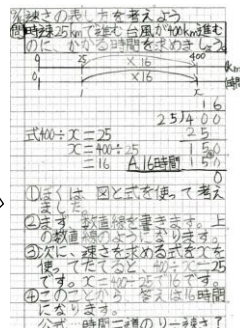 速さの表し方を考えよう
問 時速25kmで進む台風が400km進む
のに、かかる時間を求めましょう。
0 25 ×16 400
0 1 ×16 x
16
25)400
式400÷x=25 25
x=400÷25 150
=16 A.16時間 150
0
①ぼくは、図と式を使って考え
ました。
②まず、数直線を書きます。上
の数直線のようになります。
③次に、速さを求める式を
使ってたてると、400÷x=25
です。x=400÷25で16です。
④このことから、答えは16時間
になります。
公式 時間=道のり÷速さ